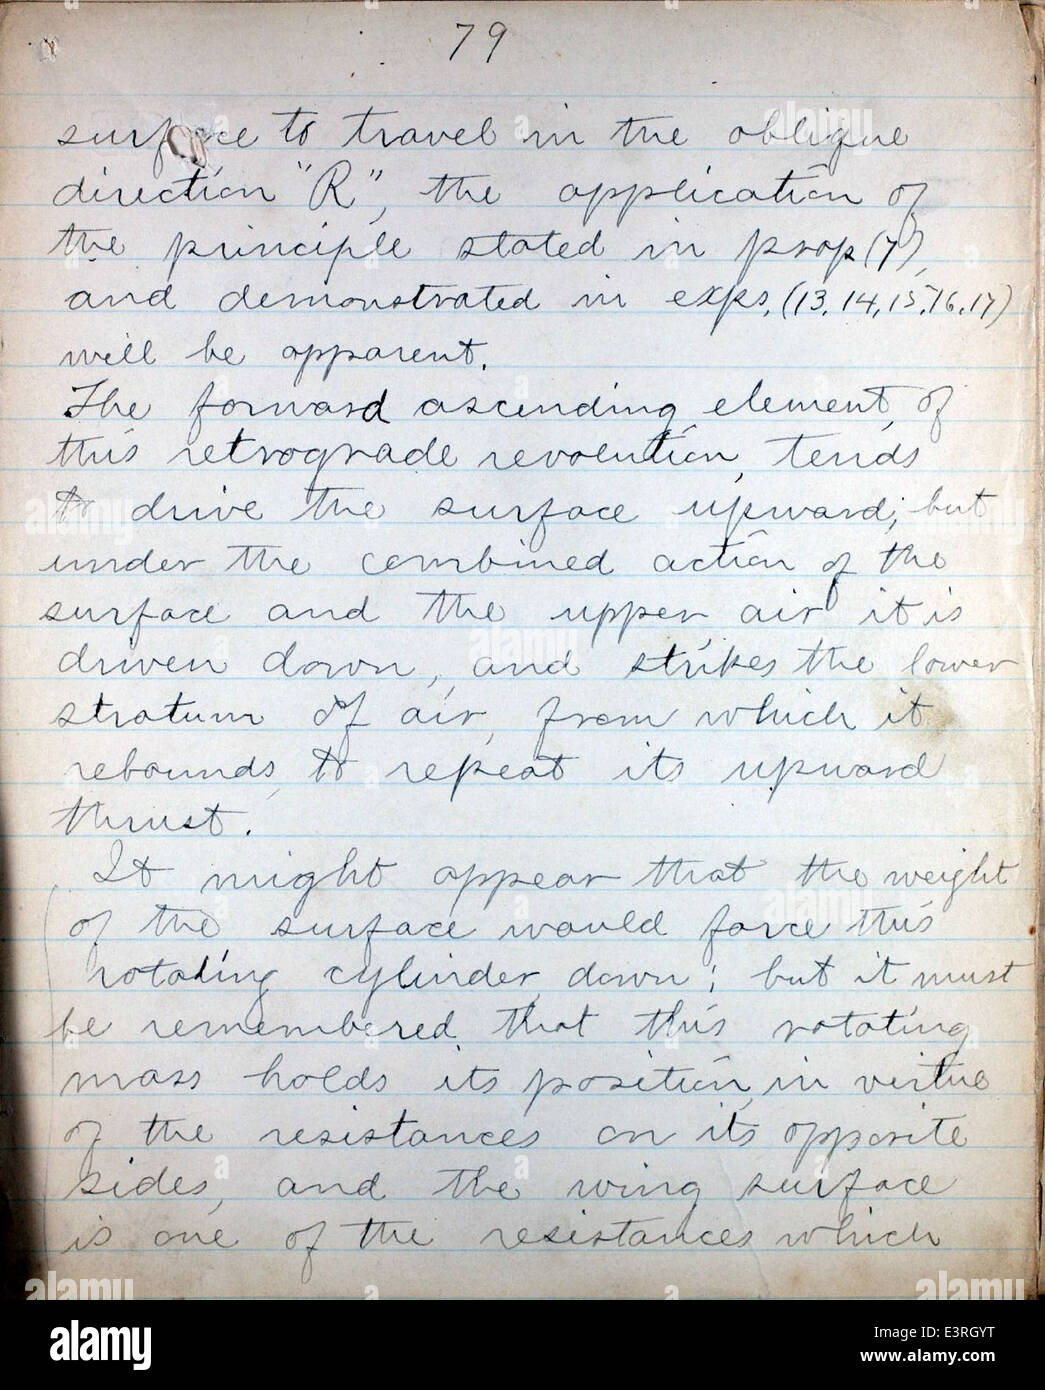 79
surface to travel in the oblique
direction "R", the application of
the principle stated in prop (7),
and demonstrated in exps, (13, 14, 15, 16, 17)
will be apparent.
The forward ascending element of
this retrograde revolution, tends
to drive the surface upward; but
under the combined action of the
surface and the upper air it is
driven down, and strikes the lower
stratum of air, from which it
rebounds, to repeat its upward
thrust.
It might appear that the weight
of the surface would force this
rotating cylinder down; but it must
be remembered that this rotating
mass holds its position, in virtue
of the resistances on its opposite
sides, and the wing surface
is one of the resistances which
alamy
Image ID: E3RGYT
www.alamy.com